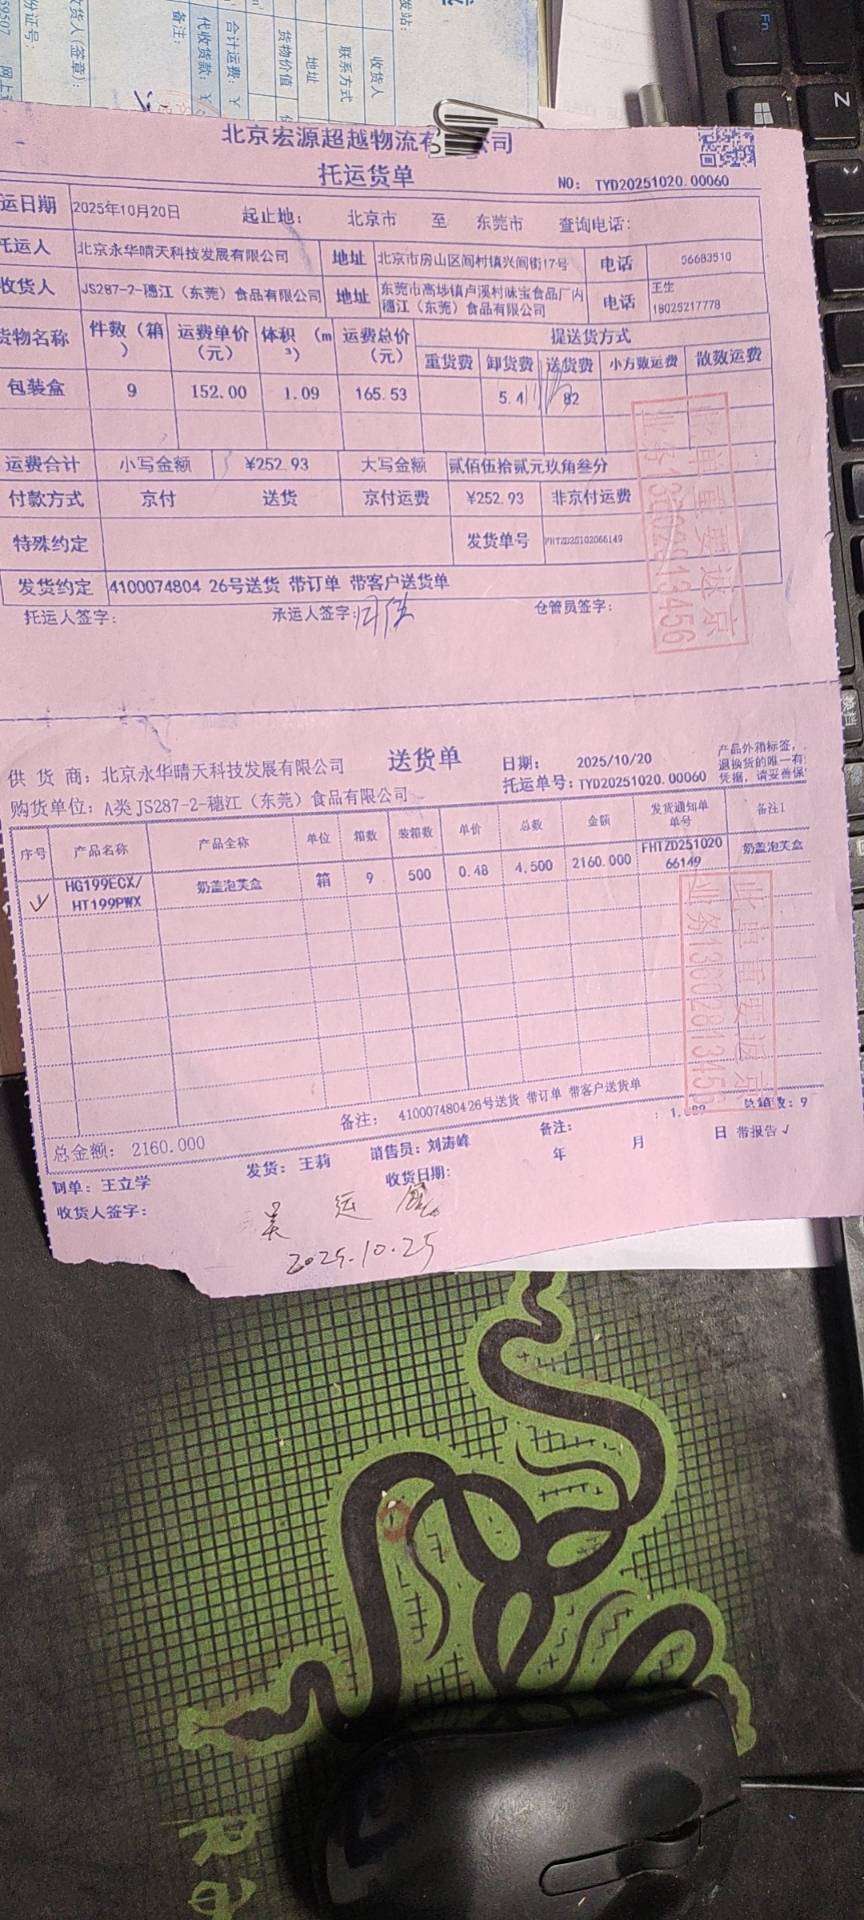 收货人(签章):
备注:
代收货款: ￥
合计运费: ￥
货物价值
地址
联系方式
收货人
发站:
Fn
Z
北京宏源超越物流有 公司
托运货单
NO: TYD20251020.00060
运日期 2025年10月20日 起止地: 北京市 至 东莞市 查询电话:
托运人 北京永华晴天科技发展有限公司 地址 北京市房山区阎村镇兴阎街17号 电话 56683510
收货人 JS287-2-穗江(东莞)食品有限公司 地址 东莞市高埗镇卢溪村味宝食品厂内穗江(东莞)食品有限公司 电话 王生 18025217778
货物名称 件数(箱) 运费单价(元) 体积 (m³) 运费总价(元) 提送货方式
重货费 卸货费 送货费 小方数运费 散数运费
包装盒 9 152.00 1.09 165.53 5.4 82
运费合计 小写金额 ¥252.93 大写金额 贰佰伍拾贰元玖角叁分
付款方式 京付 送货 京付运费 ¥252.93 非京付运费
特殊约定 发货单号 FHTZD25102066149
发货约定 4100074804 26号送货 带订单 带客户送货单
托运人签字: 承运人签字: 仓管员签字:
此单重要返京
送货单
供 货 商: 北京永华晴天科技发展有限公司 日期: 2025/10/20
购货单位: A类 JS287-2-穗江(东莞)食品有限公司 托运单号: TYD20251020.00060
产品外箱标签,
退换货的唯一有
凭据, 请妥善保
序号 产品名称 产品全称 单位 箱数 装箱数 单价 总数 金额 发货通知单单号 备注1
1 HG199ECX/HT199PWX 奶盖泡芙盒 箱 9 500 0.48 4,500 2160.000 FHTZD25102066149 奶盖泡芙盒
此单重要返京
备注: 4100074804 26号送货 带订单 带客户送货单
总金额: 2160.000 备注: 总箱数: 9
制单: 王立学 发货: 王莉 销售员: 刘涛峰 年 月 日 带报告√
收货人签字: 收货日期:
2025.10.25